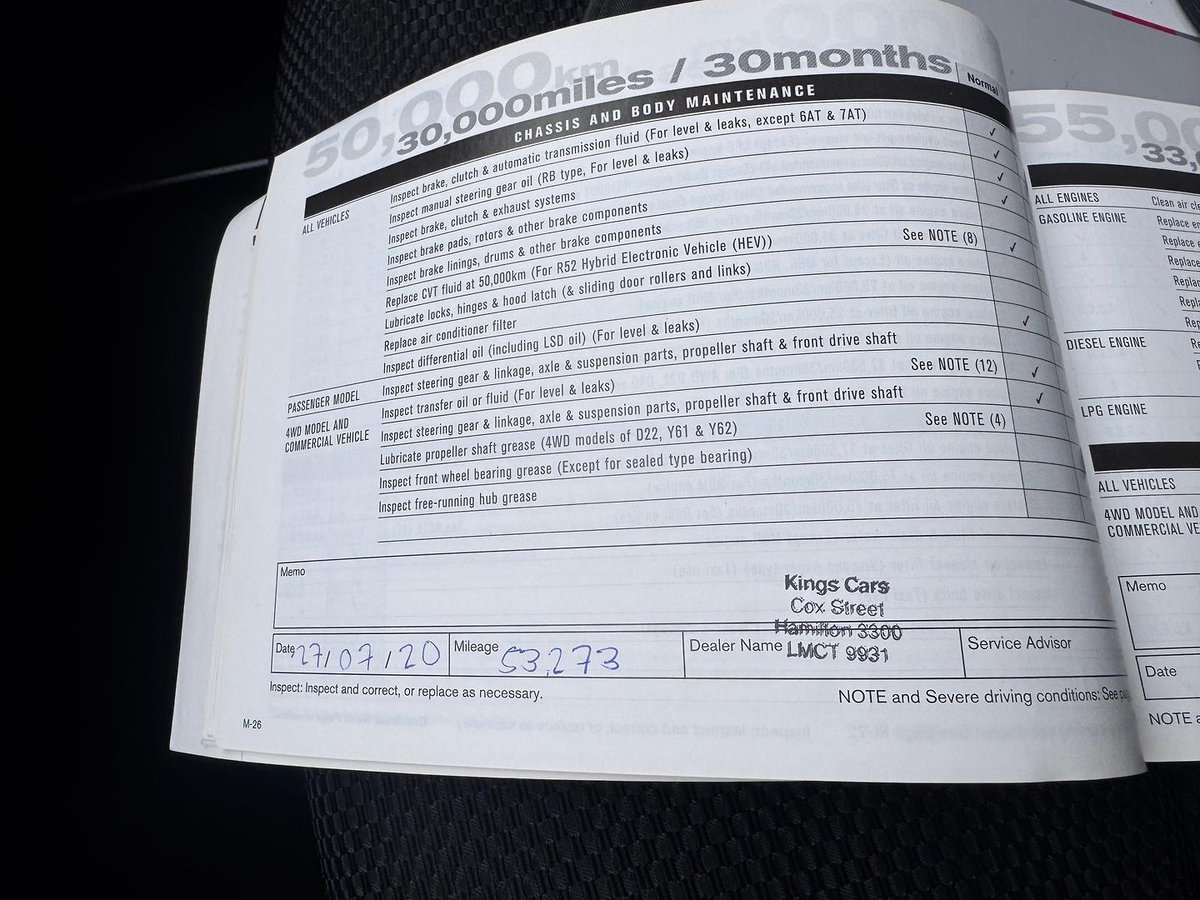 50,000km
30,000miles / 30months
Normal
CHASSIS AND BODY MAINTENANCE
ALL VEHICLES
Inspect brake, clutch & automatic transmission fluid (For level & leaks, except 6AT & 7AT) ✓
Inspect manual steering gear oil (RB type, For level & leaks) ✓
Inspect brake, clutch & exhaust systems ✓
Inspect brake pads, rotors & other brake components ✓
Inspect brake linings, drums & other brake components
Replace CVT fluid at 50,000km (For R52 Hybrid Electronic Vehicle (HEV)) See NOTE (8) ✓
Lubricate locks, hinges & hood latch (& sliding door rollers and links)
Replace air conditioner filter
Inspect differential oil (including LSD oil) (For level & leaks) ✓
PASSENGER MODEL
Inspect steering gear & linkage, axle & suspension parts, propeller shaft & front drive shaft
4WD MODEL AND
COMMERCIAL VEHICLE
Inspect transfer oil or fluid (For level & leaks) See NOTE (12) ✓
Inspect steering gear & linkage, axle & suspension parts, propeller shaft & front drive shaft ✓
Lubricate propeller shaft grease (4WD models of D22, Y61 & Y62) See NOTE (4)
Inspect front wheel bearing grease (Except for sealed type bearing)
Inspect free-running hub grease
Memo
Kings Cars
Cox Street
Hamilton 3300
LMCT 9931
Date 27/07/20
Mileage 53,273
Dealer Name
Service Advisor
Inspect: Inspect and correct, or replace as necessary.
NOTE and Severe driving conditions: See
M-26
55,0
33,
ALL ENGINES
Clean air
GASOLINE ENGINE
Replace
Replace
Replace
DIESEL ENGINE
LPG ENGINE
ALL VEHICLES
4WD MODEL AND
COMMERCIAL
Memo
Date
NOTE